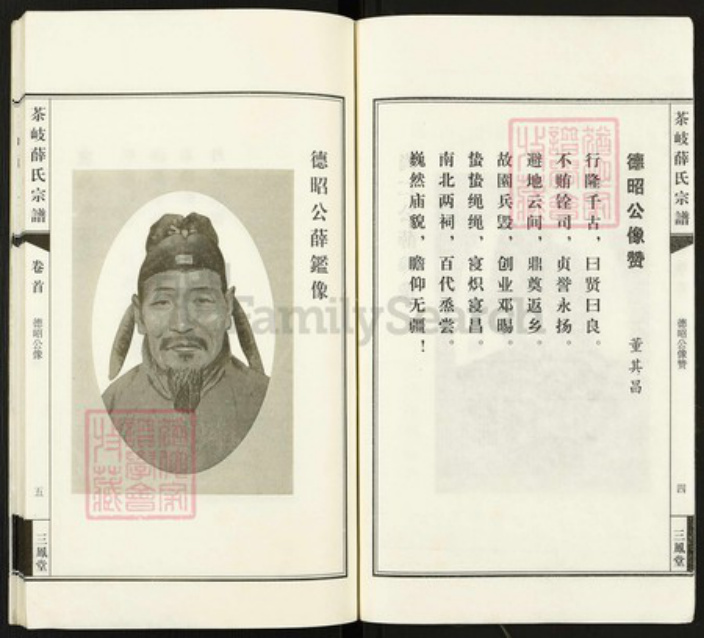 茶岐薛氏宗譜
德昭公像赞
四
三鳳堂
德昭公像赞
董其昌
行隆千古，曰贤曰良。
不贿铨司，贞誉永扬。
避地云间，鼎奠返乡。
故園兵毁，创业邓暘。
蛰蛰绳绳，寖炽寖昌。
南北两祠，百代烝尝。
巍然庙貌，瞻仰无疆！
德昭公薛鑑像
茶岐薛氏宗譜
卷首
德昭公像
五
三鳳堂
FamilySearch